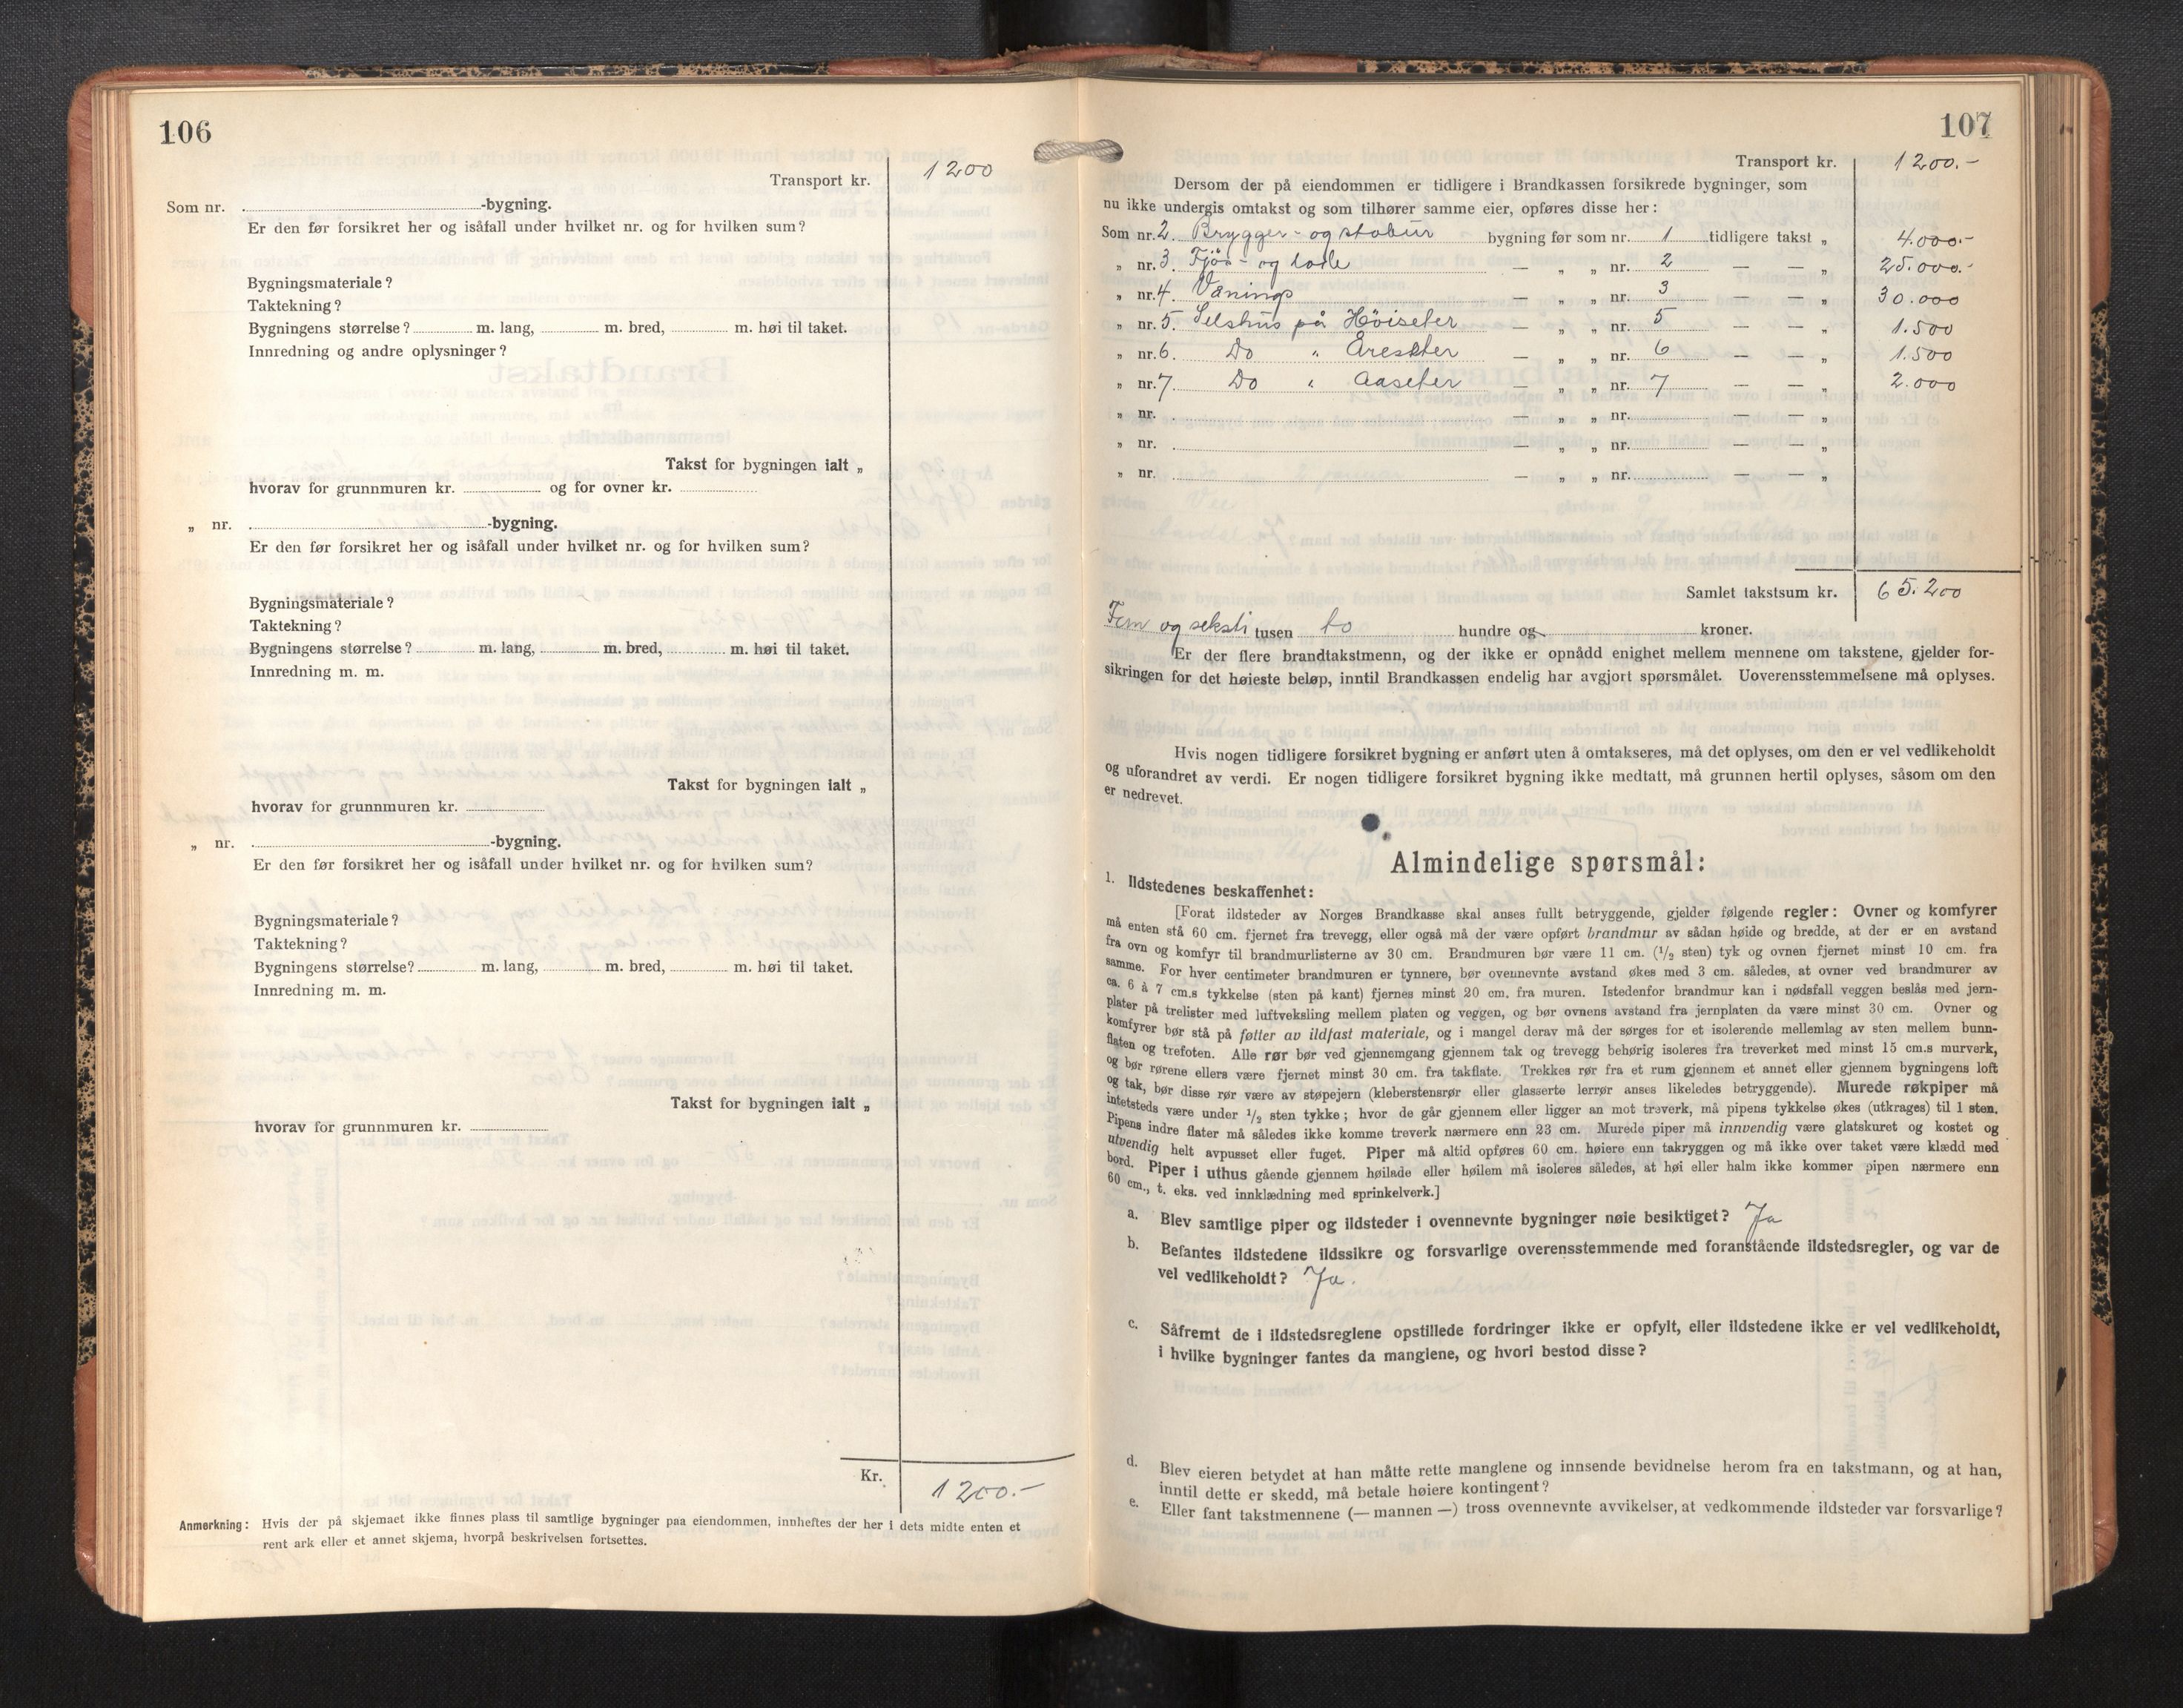 106
Transport kr. 1200
Som nr. -bygning.
Er den før forsikret her og isåfall under hvilket nr. og for hvilken sum?
Bygningsmateriale?
Taktekning?
Bygningens størrelse? m. lang, m. bred, m. høi til taket.
Innredning og andre oplysninger?
Takst for bygningen ialt „
hvorav for grunnmuren kr. og for ovner kr.
„ nr. -bygning.
Er den før forsikret her og isåfall under hvilket nr. og for hvilken sum?
Bygningsmateriale?
Taktekning?
Bygningens størrelse? m. lang, m. bred, m. høi til taket.
Innredning m. m.
Takst for bygningen ialt „
hvorav for grunnmuren kr.
„ nr. -bygning.
Er den før forsikret her og isåfall under hvilket nr. og for hvilken sum?
Bygningsmateriale?
Taktekning?
Bygningens størrelse? m. lang, m. bred, m. høi til taket.
Innredning m. m.
Takst for bygningen ialt „
hvorav for grunnmuren kr.
Kr. 1200.-
Anmerkning: Hvis der på skjemaet ikke finnes plass til samtlige bygninger paa eiendommen, innheftes der her i dets midte enten et
rent ark eller et annet skjema, hvorpå beskrivelsen fortsettes.
107
Transport kr. 1200.-
Dersom der på eiendommen er tidligere i Brandkassen forsikrede bygninger, som
nu ikke undergis omtakst og som tilhører samme eier, opføres disse her:
Som nr. 2. Brygger- og stabur bygning før som nr. 1 tidligere takst „ 4.000.-
„ nr. 3. Fjøs- og lade — „ „ nr. 2 — — „ 25.000.-
„ nr. 4. Vånings — „ „ nr. 3 — — „ 30.000
„ nr. 5. Selshus på Höiseter — „ „ nr. 5 — — „ 1.500
„ nr. 6. Do „ — „ „ nr. 6 — — „ 1.500
„ nr. 7. Do „ Aaseter — „ „ nr. 7 — — „ 2.000
„ nr. — „ „ nr. — — „
„ nr. — „ „ nr. — — „
„ nr. — „ „ nr. — — „
Samlet takstsum kr. 65.200
Fem og seksti tusen to hundre og kroner.
Er der flere brandtakstmenn, og der ikke er opnådd enighet mellem mennene om takstene, gjelder for-
sikringen for det høieste beløp, inntil Brandkassen endelig har avgjort spørsmålet. Uoverensstemmelsene må oplyses.
Hvis nogen tidligere forsikret bygning er anført uten å omtakseres, må det oplyses, om den er vel vedlikeholdt
og uforandret av verdi. Er nogen tidligere forsikret bygning ikke medtatt, må grunnen hertil oplyses, såsom om den
er nedrevet.
Almindelige spørsmål:
1. Ildstedenes beskaffenhet:
[Forat ildsteder av Norges Brandkasse skal anses fullt betryggende, gjelder følgende regler: Ovner og komfyrer
må enten stå 60 cm. fjernet fra trevegg, eller også må der være opført brandmur av sådan høide og bredde, at der er en avstand
fra ovn og komfyr til brandmurlisterne av 30 cm. Brandmuren bør være 11 cm. (1/2 sten) tyk og ovnen fjernet minst 10 cm. fra
samme. For hver centimeter brandmuren er tynnere, bør ovennevnte avstand økes med 3 cm. således, at ovner ved brandmurer av
ca. 6 à 7 cm.s tykkelse (sten på kant) fjernes minst 20 cm. fra muren. Istedenfor brandmur kan i nødsfall veggen beslås med jern-
plater på trelister med luftveksling mellem platen og veggen, og bør ovnens avstand fra jernplaten da være minst 30 cm. Ovner og
komfyrer bør stå på føtter av ildfast materiale, og i mangel derav må der sørges for et isolerende mellemlag av sten mellem bunn-
flaten og trefoten. Alle rør bør ved gjennemgang gjennem tak og trevegg behørig isoleres fra treverket med minst 15 cm.s murverk,
og bør rørene ellers være fjernet minst 30 cm. fra takflate. Trekkes rør fra et rum gjennem et annet eller gjennem bygningens loft
og tak, bør disse rør være av støpejern (kleberstensrør eller glasserte lerrør anses likeledes betryggende). Murede røkpiper må
intetsteds være under 1/2 sten tykke; hvor de går gjennem eller ligger an mot treverk, må pipens tykkelse økes (utkrages) til 1 sten.
Pipens indre flater må således ikke komme treverk nærmere enn 23 cm. Murede piper må innvendig være glatskuret og kostet og
utvendig helt avpusset eller fuget. Piper må altid opføres 60 cm. høiere enn takryggen og må ikke over taket være klædd med
bord. Piper i uthus gående gjennem høilade eller høilem må isoleres således, at høi eller halm ikke kommer pipen nærmere enn
60 cm., t. eks. ved innklædning med sprinkelverk.]
a. Blev samtlige piper og ildsteder i ovennevnte bygninger nøie besiktiget? Ja
b. Befantes ildstedene ildssikre og forsvarlige overensstemmende med foranstående ildstedsregler, og var de
vel vedlikeholdt? Ja.
c. Såfremt de i ildstedsreglene opstillede fordringer ikke er opfylt, eller ildstedene ikke er vel vedlikeholdt,
i hvilke bygninger fantes da manglene, og hvori bestod disse?
d. Blev eieren betydet at han måtte rette manglene og innsende bevidnelse herom fra en takstmann, og at han,
inntil dette er skedd, må betale høiere kontingent?
e. Eller fant takstmennene (— mannen —) tross ovennevnte avvikelser, at vedkommende ildsteder var forsvarlige?